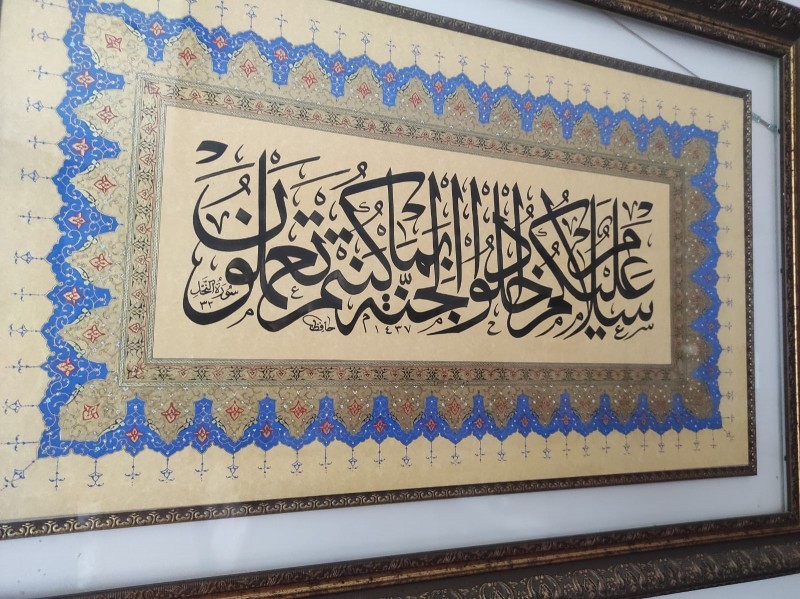 سَلَامٌ عَلَيْكُمُ ادْخُلُوا الْجَنَّةَ بِمَا كُنْتُمْ تَعْمَلُونَ
سورة النحل
٣٢
١٤٣٧